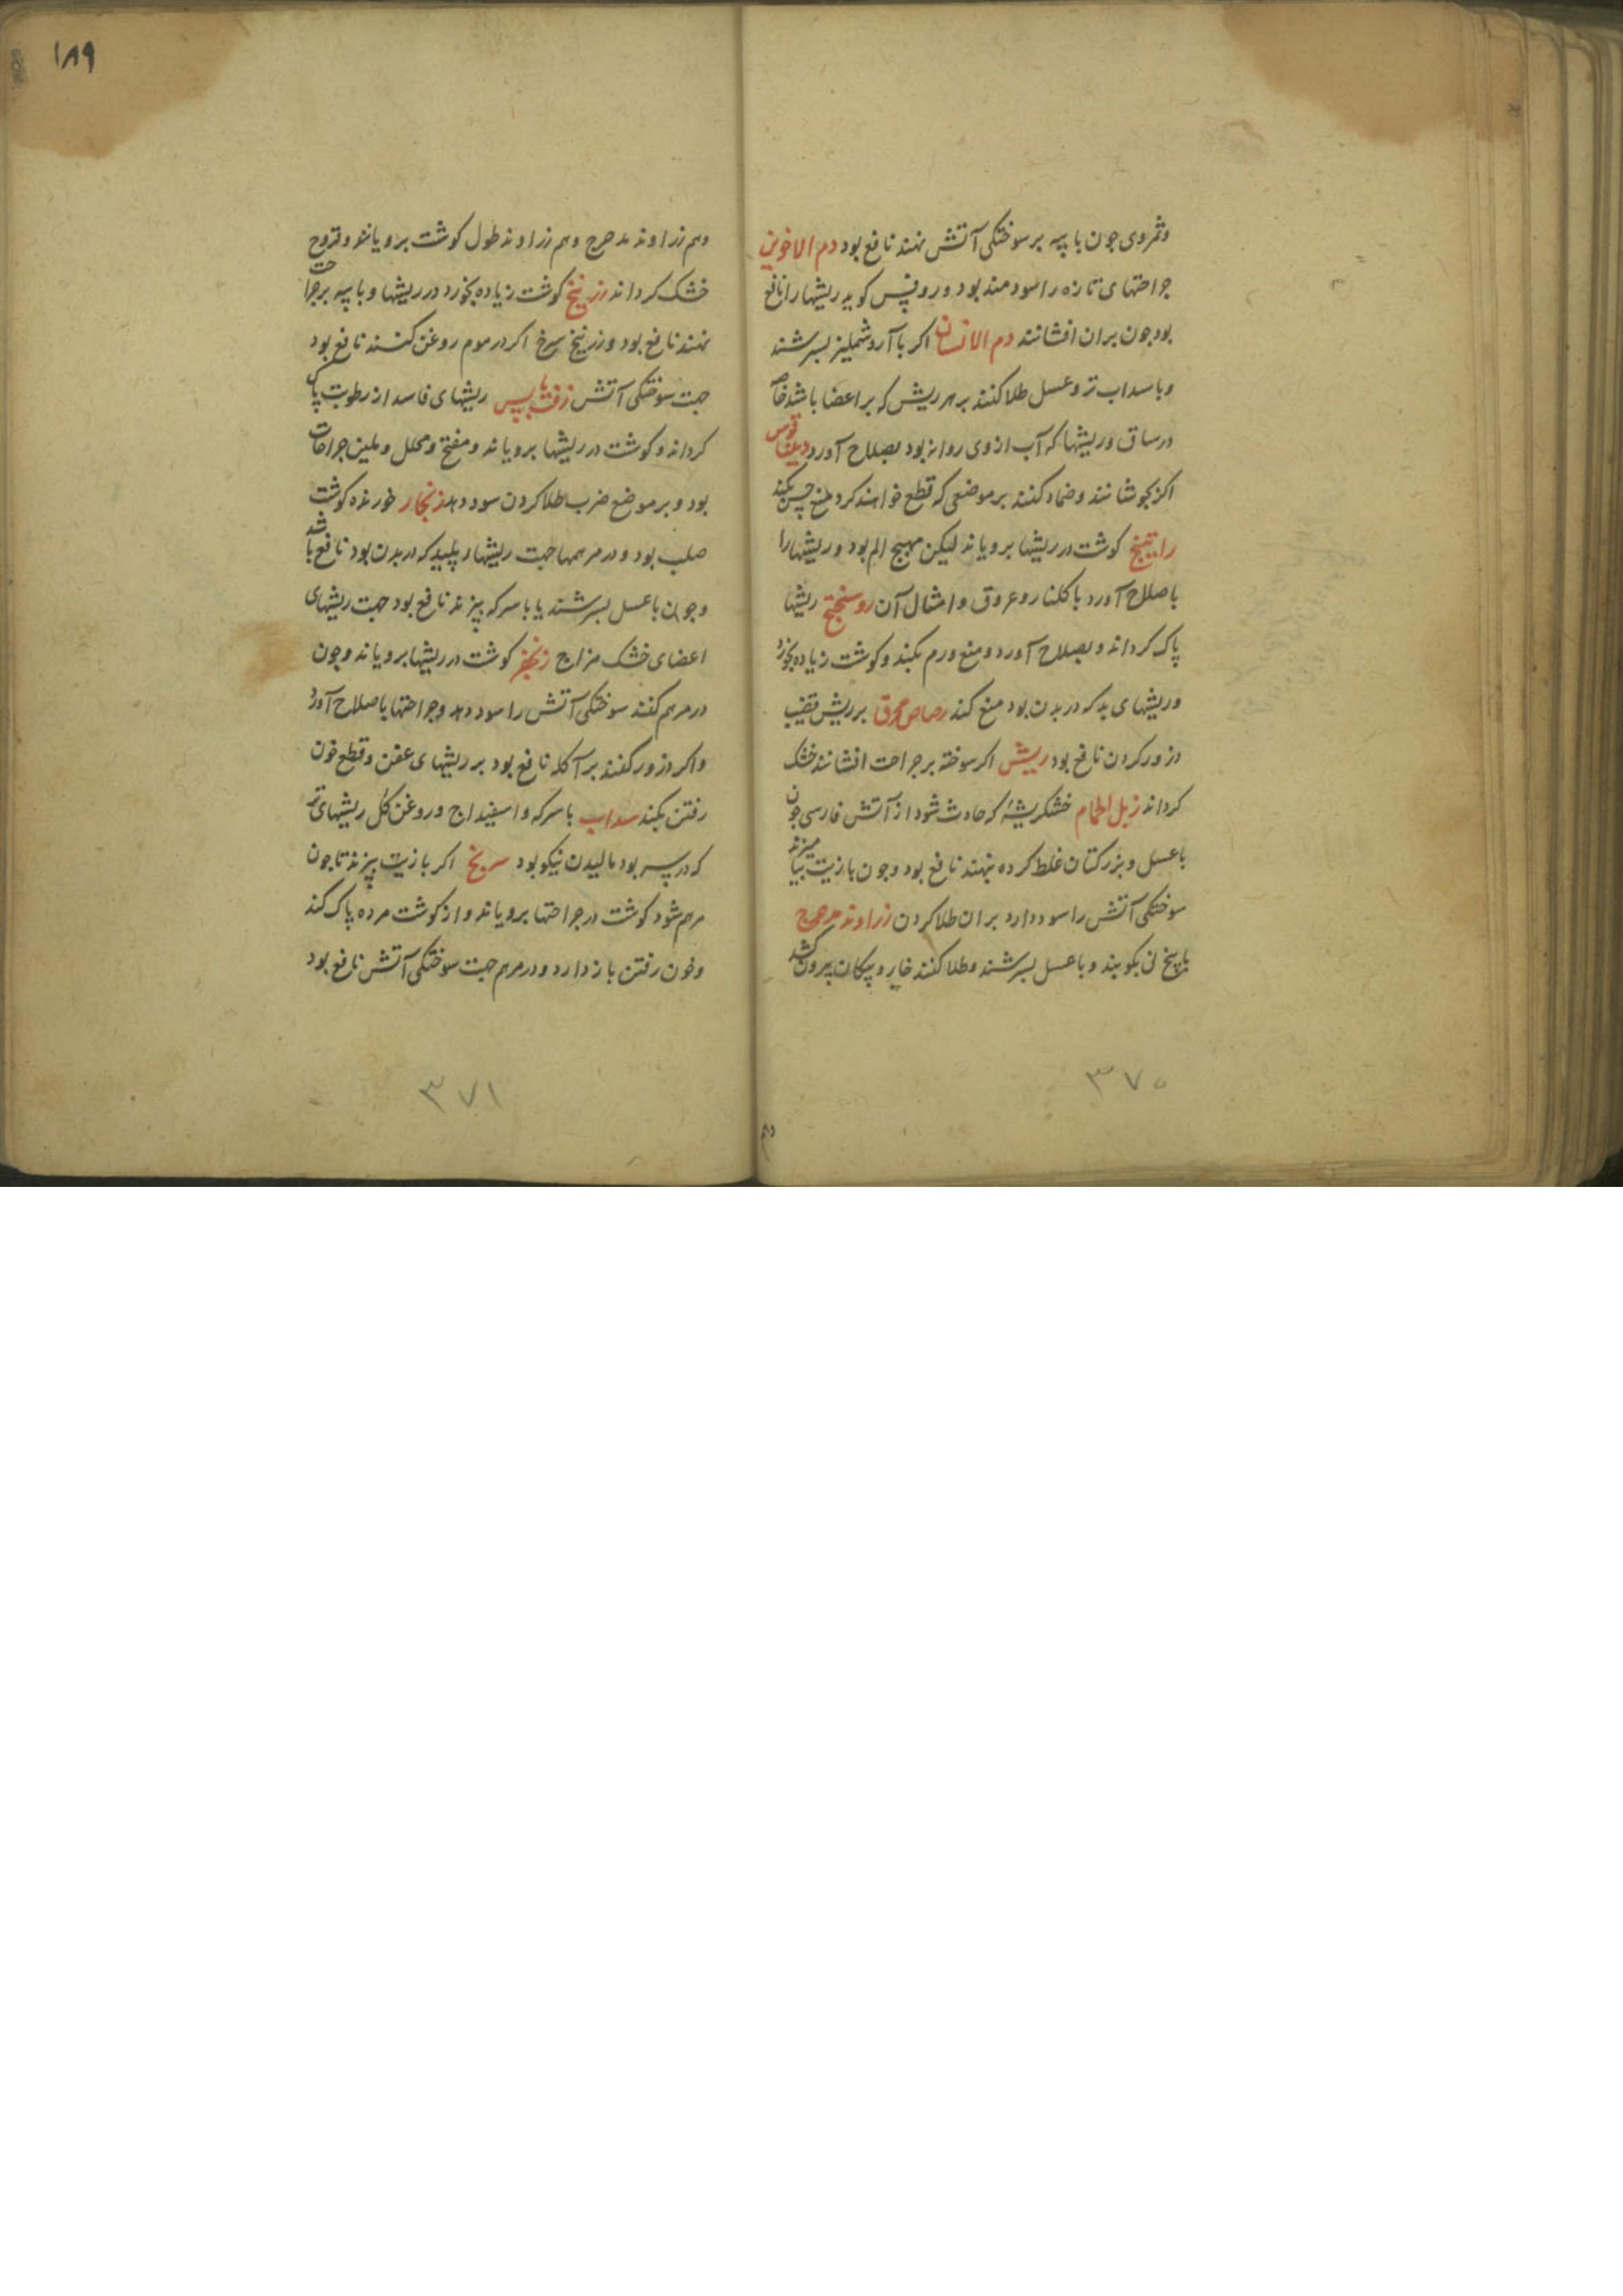 وثمروی جون با پیه بر سوختکی آتش نهند نافع بود دم الاخوین
جراحتهای تازه را سودمند بود و روفس کوید ریشها را نافع
بود جون بران افشانند دم الانسان اکر با آرد شملیز بسرشند
و با سداب تر و عسل طلا کنند بر هر ریش که بر اعضا باشد خاصه
در ساق و ریشها که آب از وی روانه بود بصلاح آورد
اکر بجوشانند و ضماد کنند بر موضعی که قطع خواهند کرد منع حس بکند
راتینج کوشت در ریشها برویاند لیکن مهیج الم بود و ریشها را
باصلاح آورد با کلنار و عروق و امثال آن روسختج ریشها
پاک کرداند و بصلاح آورد و منع ورم بکند و کوشت زیاده بخورد
و ریشهای بد که در بدن بود منع کند رصاص محرق بر ریش قضیب
ذرور کردن نافع بود ریش اکر سوخته بر جراحت افشانند خشک
کرداند زبل الحمام خشکریشهٔ که حادث شود از آتش فارسی جون
با عسل و بزرکتان غلط کرده نهند نافع بود و جون با زیت بیامیزند
سوختکی آتش را سود دارد بران طلا کردن زراوند مدحرج
با پیخ نی بکوبند و با عسل بسرشند و طلا کنند خار و پیکان بیرون کشد
۳۷۰
۱۸۹
وهم زراوند مدحرج وهم زراوند طول کوشت برویانند و قروح
خشک کرداند زرنیخ کوشت زیاده بخورد در ریشها و با پیه بر جراحت
نهند نافع بود و زرنیخ سرخ اکر در موم روغن کنند نافع بود
جهت سوختکی آتش زفت یابس ریشهای فاسد از رطوبت پاک
کرداند و کوشت در ریشها برویاند و مفتح و محلل و ملین جراحات
بود و بر موضع ضرب طلا کردن سود دهد زنجار خورنده کوشت
صلب بود و در مرهمها جهت ریشهاء پلید که در بدن بود نافع باشد
و جون با عسل بسرشند یا با سرکه بپزند نافع بود جهت ریشهای
اعضای خشک مزاج زنجفر کوشت در ریشها برویاند و جون
در مرهم کنند سوختکی آتش را سود دهد و جراحتها باصلاح آورد
و اکر ذرور کنند بر آکله نافع بود بر ریشهای عفن و قطع خون
رفتن بکند سداب با سرکه و اسفیداج و روغن کل ریشهای تر
که در سر بود مالیدن نیکو بود سرنج اکر با زیت بپزند تا جون
مرهم شود کوشت در جراحتها برویاند و از کوشت مرده پاک کند
و خون رفتن باز دارد و در مرهم جهت سوختکی آتش نافع بود
۳۷۱